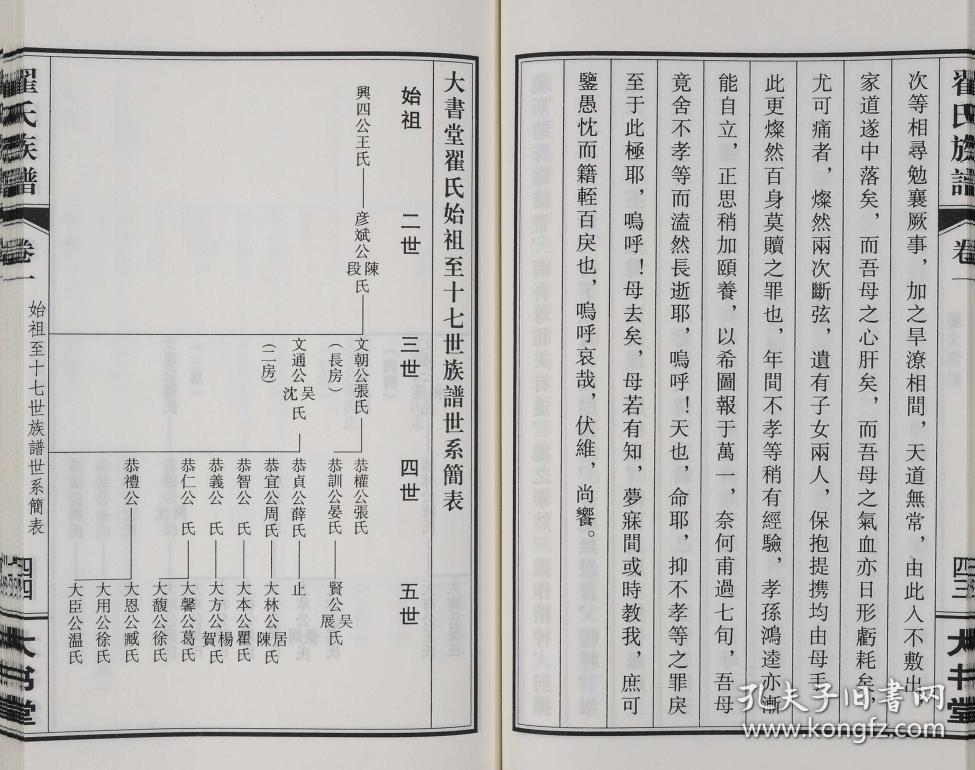 翟氏族譜
卷一
四三
大书堂
次等相尋勉襄厥事，加之旱潦相間，天道無常，由此人不敷出，
家道遂中落矣，而吾母之心肝矣，而吾母之氣血亦日形虧耗矣，
尤可痛者，燦然兩次斷弦，遺有子女兩人，保抱提携均由母手，
此更燦然百身莫贖之罪也，年間不孝等稍有經驗，孝孫鴻逵亦漸
能自立，正思稍加頤養，以希圖報于萬一，奈何甫過七旬，吾母
竟舍不孝等而溘然長逝耶，嗚呼！天也，命耶，抑不孝等之罪戾
至于此極耶，嗚呼！母去矣，母若有知，夢寐間或時教我，庶可
鑒愚忱而籍輕百戾也，嗚呼哀哉，伏維，尚饗。
大書堂翟氏始祖至十七世族譜世系簡表
始祖 二世 三世 四世 五世
興四公王氏
彦斌公陳段氏
文朝公張氏（長房）
文通公吴沈氏（二房）
恭權公張氏
恭訓公晏氏
恭貞公薛氏
恭宜公周氏
恭智公 氏
恭義公 氏
恭仁公 氏
恭禮公
賢公吴展氏
止
大林公居陳氏
大本公瞿氏
大方公楊賀氏
大馨公葛氏
大馥公徐氏
大恩公臧氏
大用公徐氏
大臣公温氏
翟氏族譜
卷一
始祖至十七世族譜世系簡表
四四
大书堂
孔夫子旧书网
www.kongfz.com